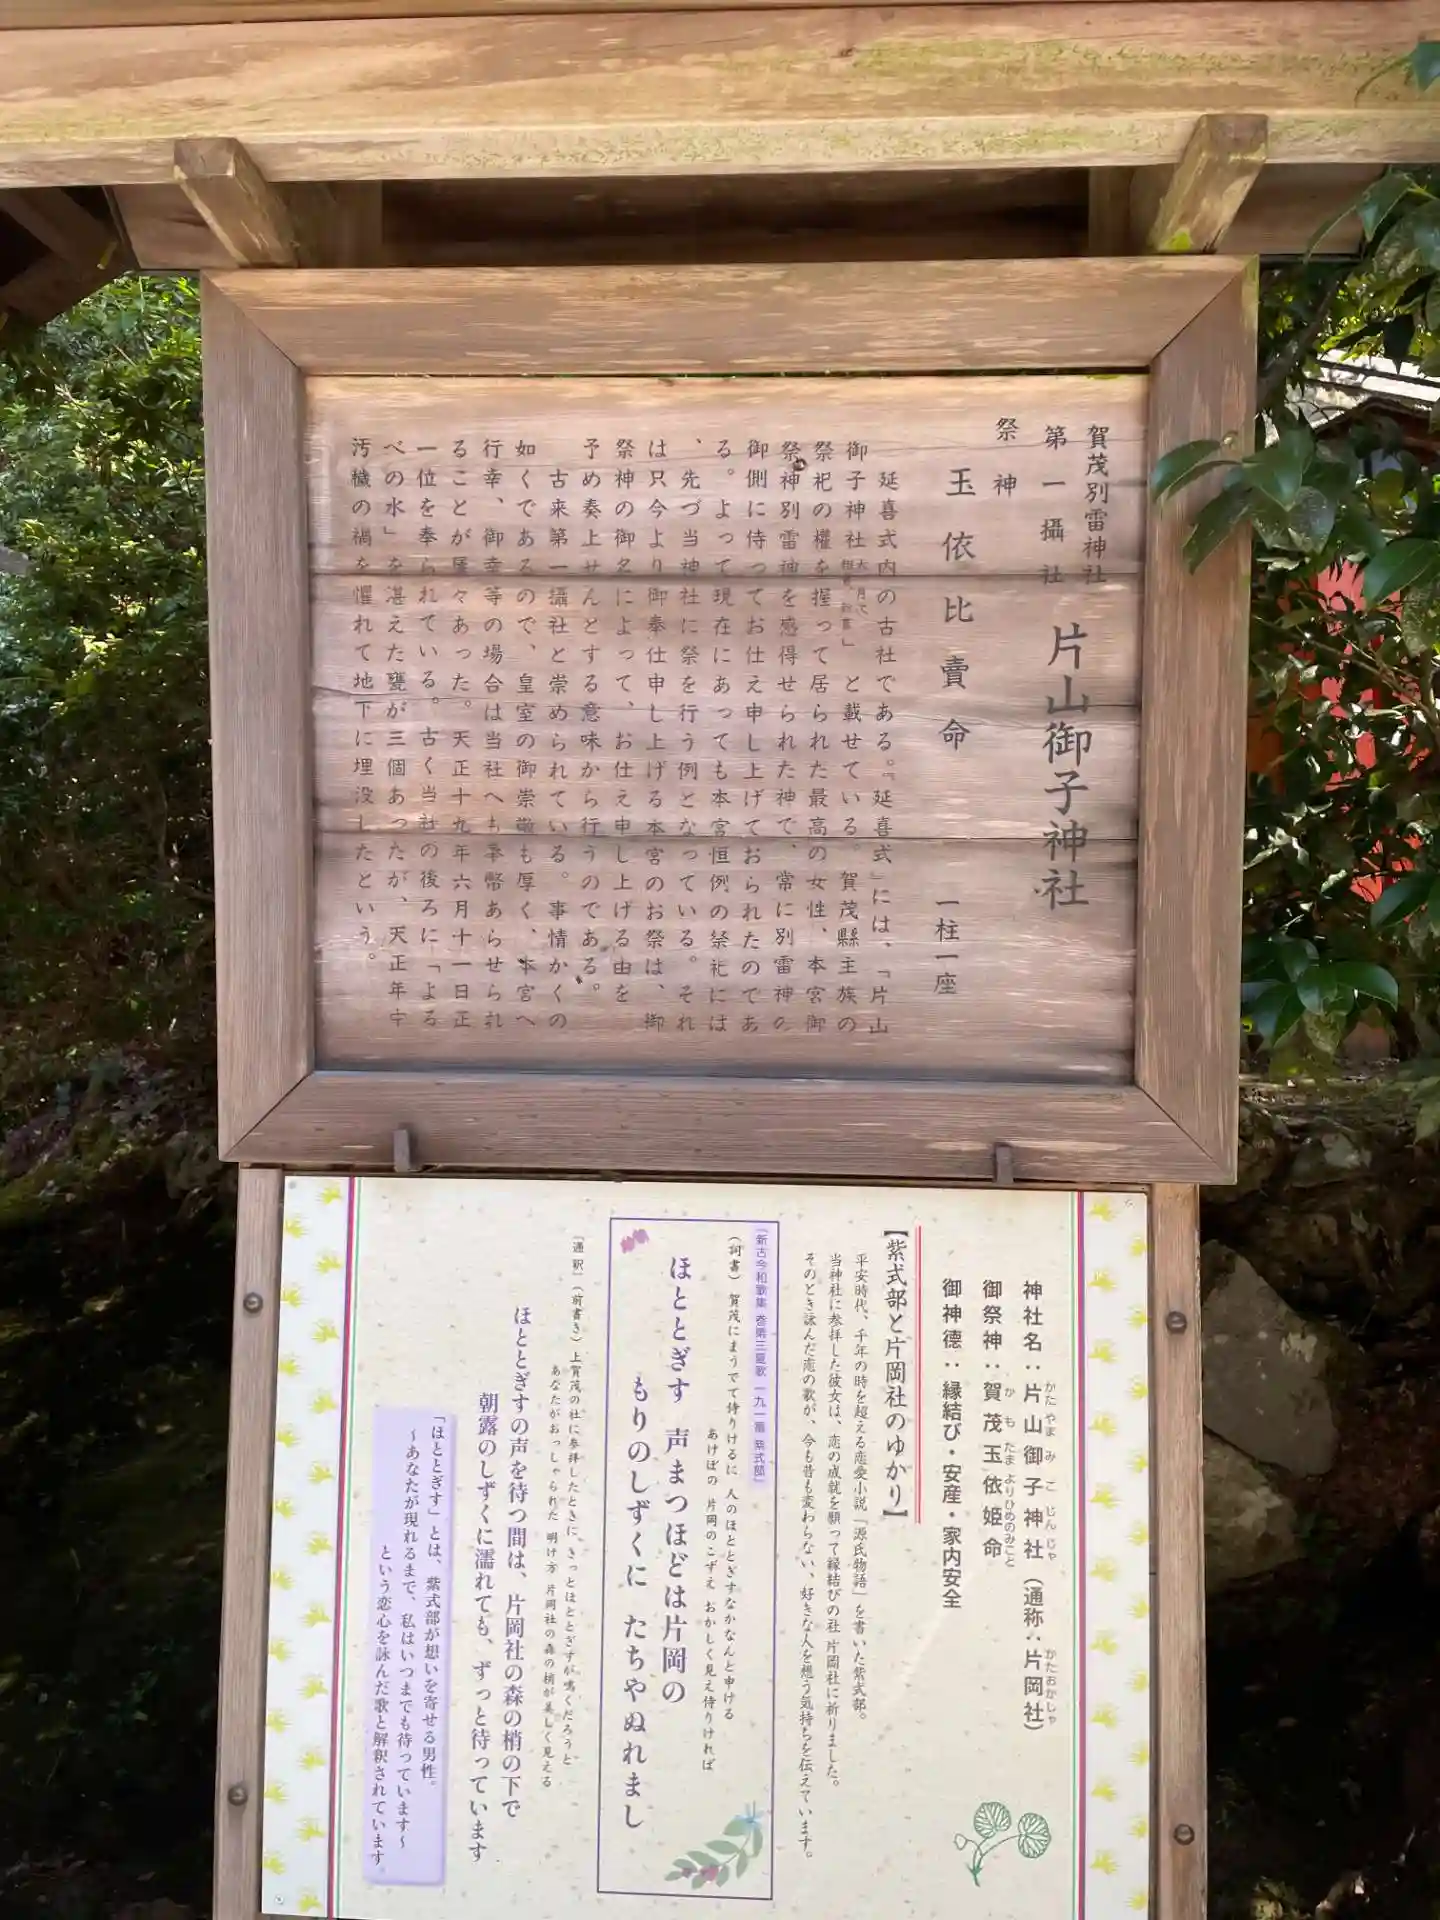 賀茂別雷神社
第一攝社 片山御子神社
祭神
玉依比賣命 一柱一座
延喜式内の古社である。『延喜式』には、「片山
御子神社 」と載せている。賀茂縣主族の
祭祀の權を握って居られた最高の女性、本宮御
祭神別雷神を感得せられた神で、常に別雷神の
御側に侍ってお仕え申し上げておられたのであ
る。よって現在にあっても本宮恒例の祭祀には
、先づ当神社に祭を行う例となっている。それ
は只今より御奉仕申し上げる本宮のお祭は、御
祭神の御名によって、お仕え申し上げる由を
予め奏上せんとする意味から行うのである。
古来第一攝社と崇められている。事情かくの
如くであるので、皇室の御崇敬も厚く、本宮へ
行幸、御幸等の場合は当社へも奉幣あらせられ
ることが屡々あった。天正十九年六月十一日正
一位を奉られている。古く当社の後ろに「よる
べの水」を湛えた甕が三個あったが、天正年中
汚穢の禍を懼れて地下に埋没したという。
神社名：片山御子神社（通称：片岡社）
かた やま み こ じん じゃ かたおかしゃ
御祭神：賀茂玉依姫命
か も たま よりひめのみこと
御神徳：縁結び・安産・家内安全
【紫式部と片岡社のゆかり】
平安時代、千年の時を超える恋愛小説「源氏物語」を書いた紫式部。
当神社に参拝した彼女は、恋の成就を願って縁結びの社 片岡社に祈りました。
そのとき詠んだ恋の歌が、今も昔も変わらない、好きな人を想う気持ちを伝えています。
「新古今和歌集 巻第三夏歌 一九一番 紫式部」
（詞書）賀茂にまうでて侍りけるに 人のほととぎすなかなんと申ける
あけぼの 片岡のこずえ おかしく見え侍りければ
ほととぎす 声まつほどは片岡の
もりのしずくに たちやぬれまし
「通釈」（前書き）上賀茂の社に参拝したときに、きっとほととぎすが鳴くだろうと
あなたがおっしゃられた 明け方 片岡社の森の梢が美しく見える
ほととぎすの声を待つ間は、片岡社の森の梢の下で
朝露のしずくに濡れても、ずっと待っています
「ほととぎす」とは、紫式部が想いを寄せる男性。
～あなたが現れるまで、私はいつまでも待っています～
という恋心を詠んだ歌と解釈されています。